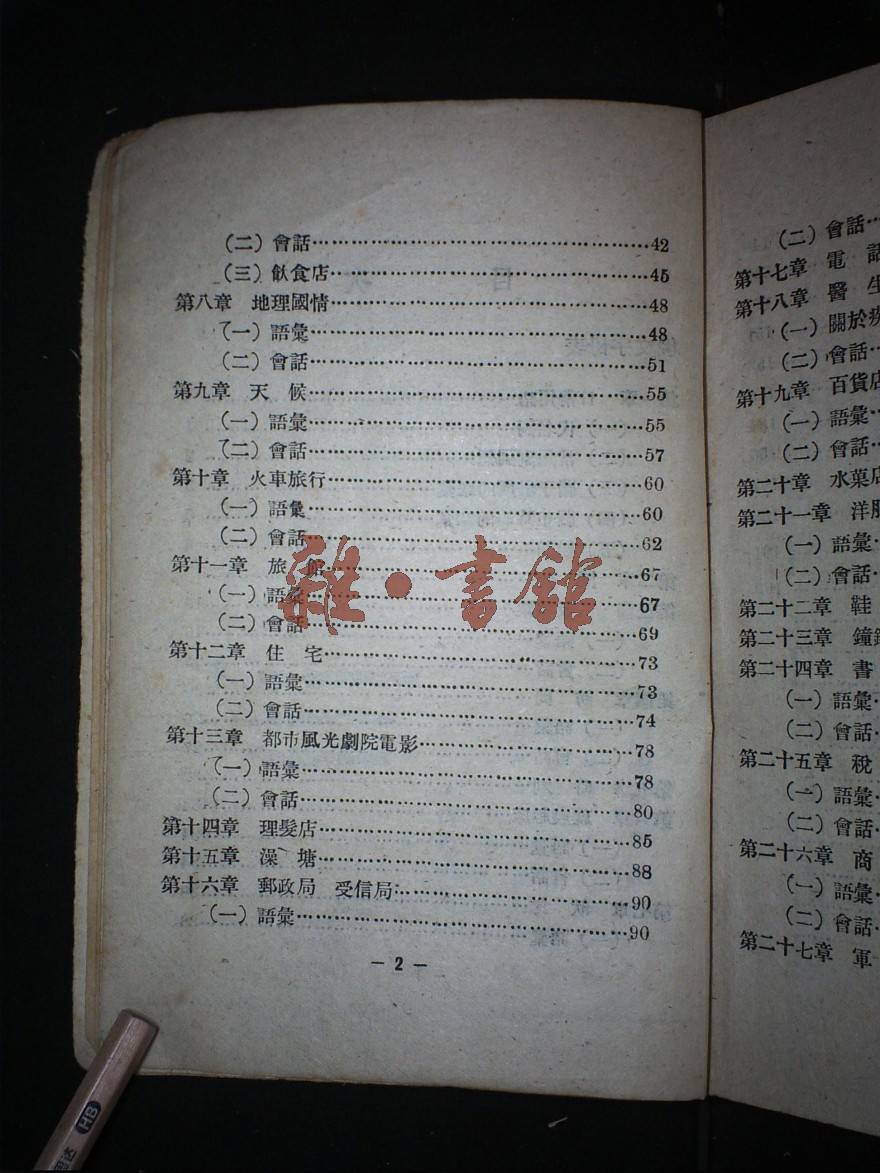 (二)會話……42
(三)飲食店……45
第八章 地理國情……48
(一)語彙……48
(二)會話……51
第九章 天候……55
(一)語彙……55
(二)會話……57
第十章 火車旅行……60
(一)語彙……60
(二)會話……62
第十一章 旅館……67
(一)語彙……67
(二)會話……69
第十二章 住宅……73
(一)語彙……73
(二)會話……74
第十三章 都市風光劇院電影……78
(一)語彙……78
(二)會話……80
第十四章 理髮店……85
第十五章 澡塘……88
第十六章 郵政局 受信局……90
(一)語彙……90
— 2 —
(二)會話…
第十七章 電話
第十八章 醫生
(一)關於疾
(二)會話…
第十九章 百貨店
(一)語彙…
(二)會話…
第二十章 水菓店
第二十一章 洋服
(一)語彙…
(二)會話…
第二十二章 鞋
第二十三章 鐘錶
第二十四章 書
(一)語彙…
(二)會話…
第二十五章 稅
(一)語彙…
(二)會話…
第二十六章 商
(一)語彙…
(二)會話…
第二十七章 軍
雜·書館
HB